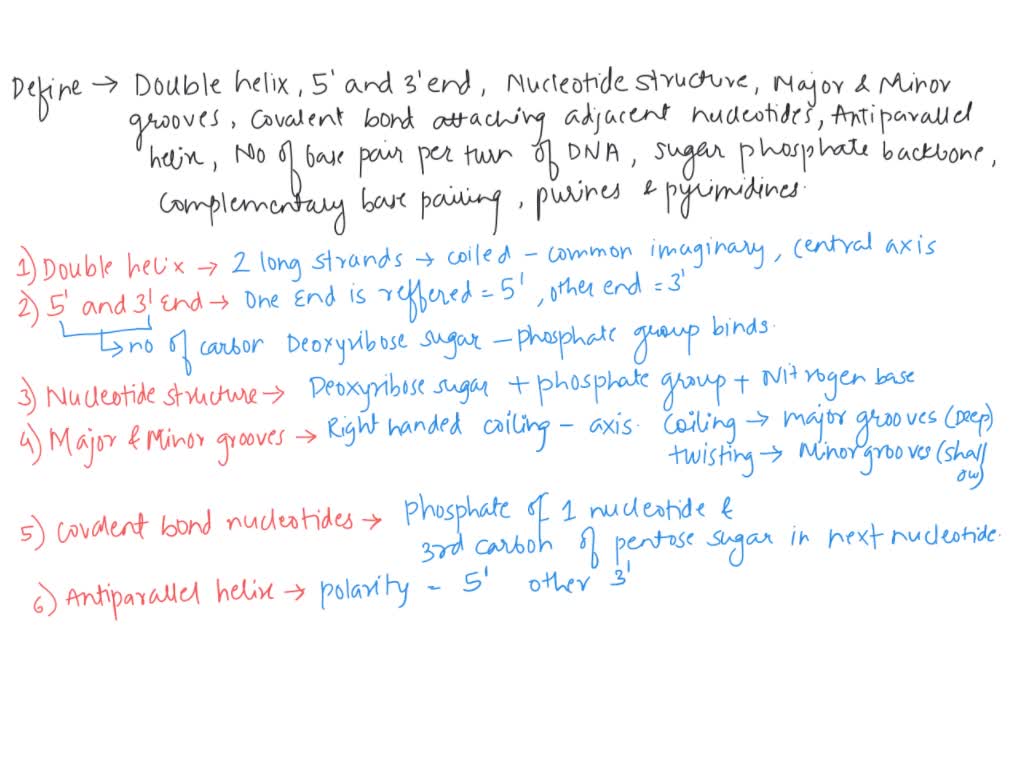 Define → Double helix, 5' and 3' end, Nucleotide structure, Major & Minor
grooves, Covalent bond attaching adjacent nucleotides, Antiparallel
helix, No of base pair per turn of DNA, sugar phosphate backbone,
Complementary base pairing, purines & pyrimidines.
1) Double helix → 2 long strands → coiled - common imaginary, central axis
2) 5' and 3' End → One End is reffered = 5', other end = 3'
↳ no of carbon Deoxyribose sugar - phosphate group binds.
3) Nucleotide structure → Deoxyribose sugar + phosphate group + Nitrogen base
4) Major & Minor grooves → Right handed coiling - axis. Coiling → major grooves (Deep)
twisting → Minor grooves (shall
ow)
5) Covalent bond nucleotides → phosphate of 1 nucleotide &
3rd carbon of pentose sugar in next nucleotide.
6) Antiparallel helix → polarity - 5' other 3'